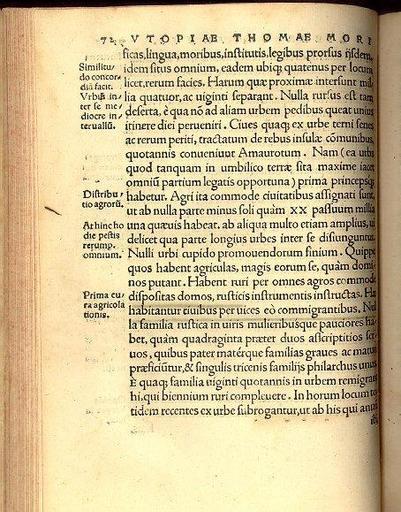 72 VTOPIAE THOMAE MORI
ficas, lingua, moribus, institutis, legibus prorsus ijsdem,
idem situs omnium, eadem ubiqꝫ quatenus per locum
licet, rerum facies. Harum quæ proximæ intersunt mil
lia quatuor, ac uiginti separant. Nulla rursus est tam
deserta, è qua nō ad aliam urbem pedibus queat unius
itinere diei perueniri. Ciues quaqꝫ ex urbe terni senes
ac rerum periti, tractatum de rebus insulæ cōmunibus,
quotannis conueniunt Amaurotum. Nam (ea urbs
quod tanquam in umbilico terræ sita maxime iacet
omniū partium legatis opportuna) prima princepsqꝫ
habetur. Agri ita commode ciuitatibus assignati sunt,
ut ab nulla parte minus soli quàm XX passuum millia
una quæuis habeat. ab aliqua multo etiam amplius, ui
delicet qua parte longius urbes inter se disiunguntur.
Nulli urbi cupido promouendorum finium. Quippe
quos habent agricolas, magis eorum se, quàm domi
nos putant. Habent ruri per omnes agros commode
dispositas domos, rusticis instrumentis instructas. Hæ
habitantur ciuibus per uices eò commigrantibus. Nul
la familia rustica in uiris mulieribusque pauciores ha
bet, quàm quadraginta præter duos ascriptitios ser
uos, quibus pater materque familias graues ac maturi
præficiūtur, & singulis tricenis familijs philarchus unus.
E quaqꝫ familia uiginti quotannis in urbem remigrant
hi, qui biennium ruri compleuere. In horum locum to
tidem recentes ex urbe subrogantur, ut ab his qui annū
Similitu/
do concor/
diā facit.
Vrbiū in/
ter se me/
diocre in/
teruallū.
Distribu/
tio agrorū.
At hinc ho
die pestis
rerump.
omnium.
Prima cu/
ra agricola
tionis.